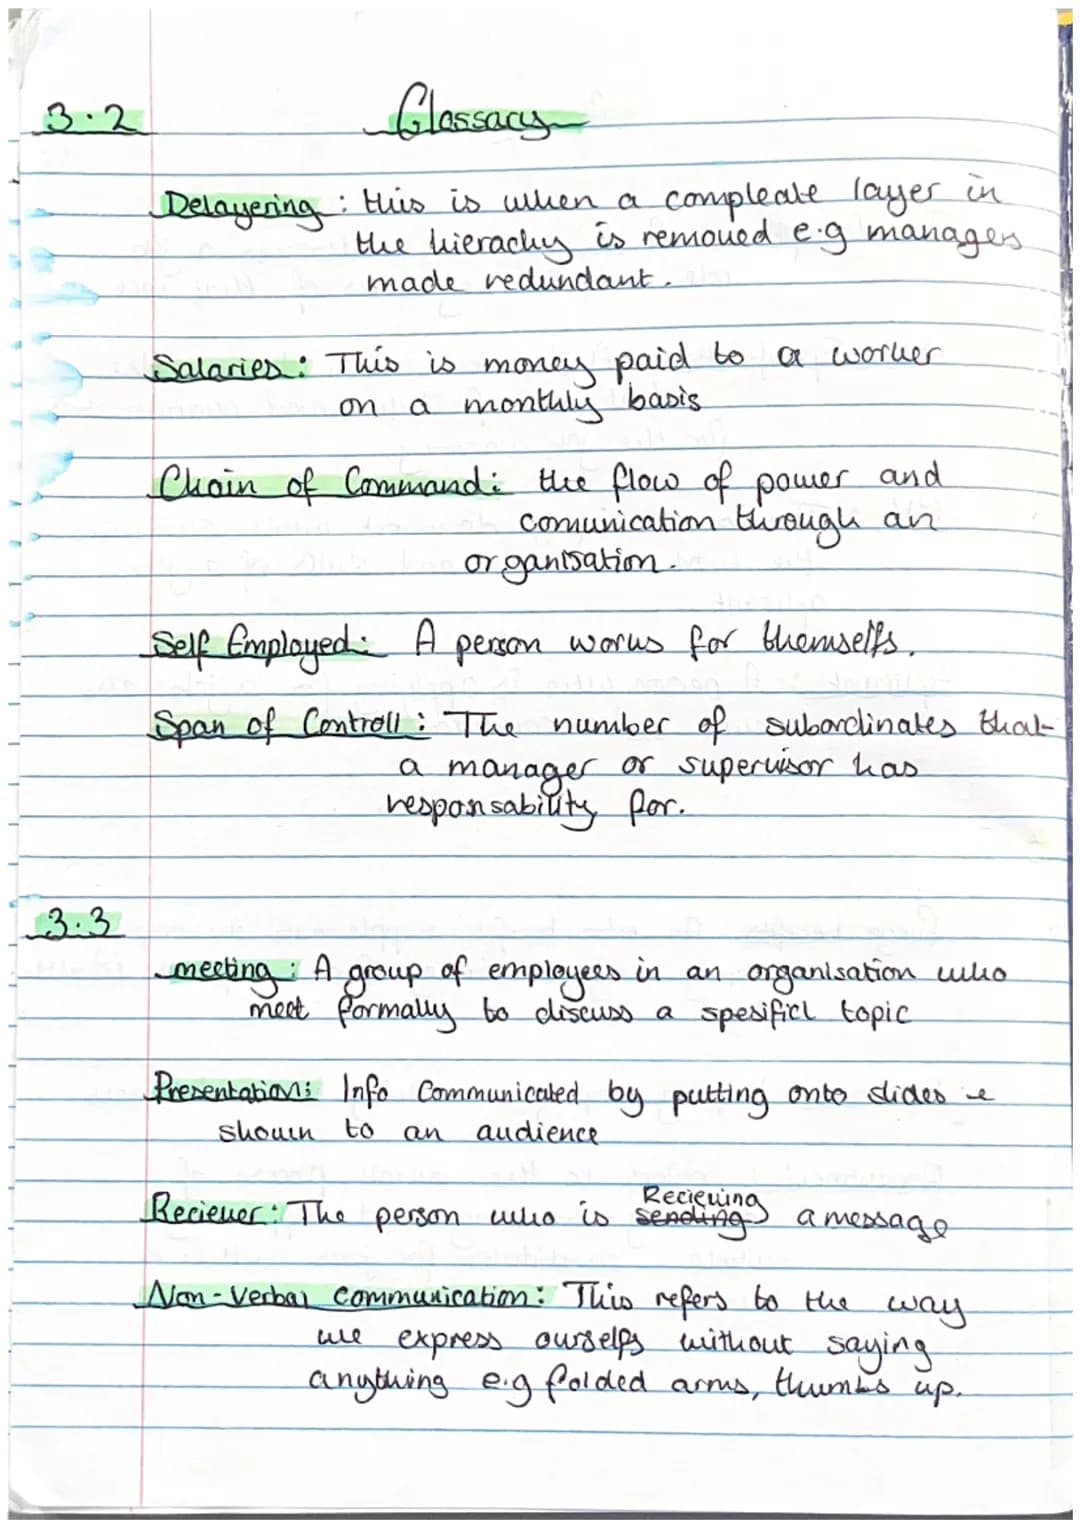 3.2 Glossary
Delayering : this is when a compleate layer in
the hierachy is removed e.g managers
made redundant.
Salaries : This is money paid to a worker
on a monthly basis
Chain of Command : the flow of power and
comunication through an
organisation.
Self Employed : A person works for themselfs.
Span of Controll : The number of subordinates that
a manager or supervisor has
responsability for.
3.3
meeting : A group of employees in an organisation who
meet formally to discuss a spesificl topic
Presentation : Info Communicated by putting onto slides e
shown to an audience
Reciever : The person who is sending Recieving a message
Non-Verbal communication : This refers to the way
we express ourselfs without saying
anything e.g folded arms, thumbs up.